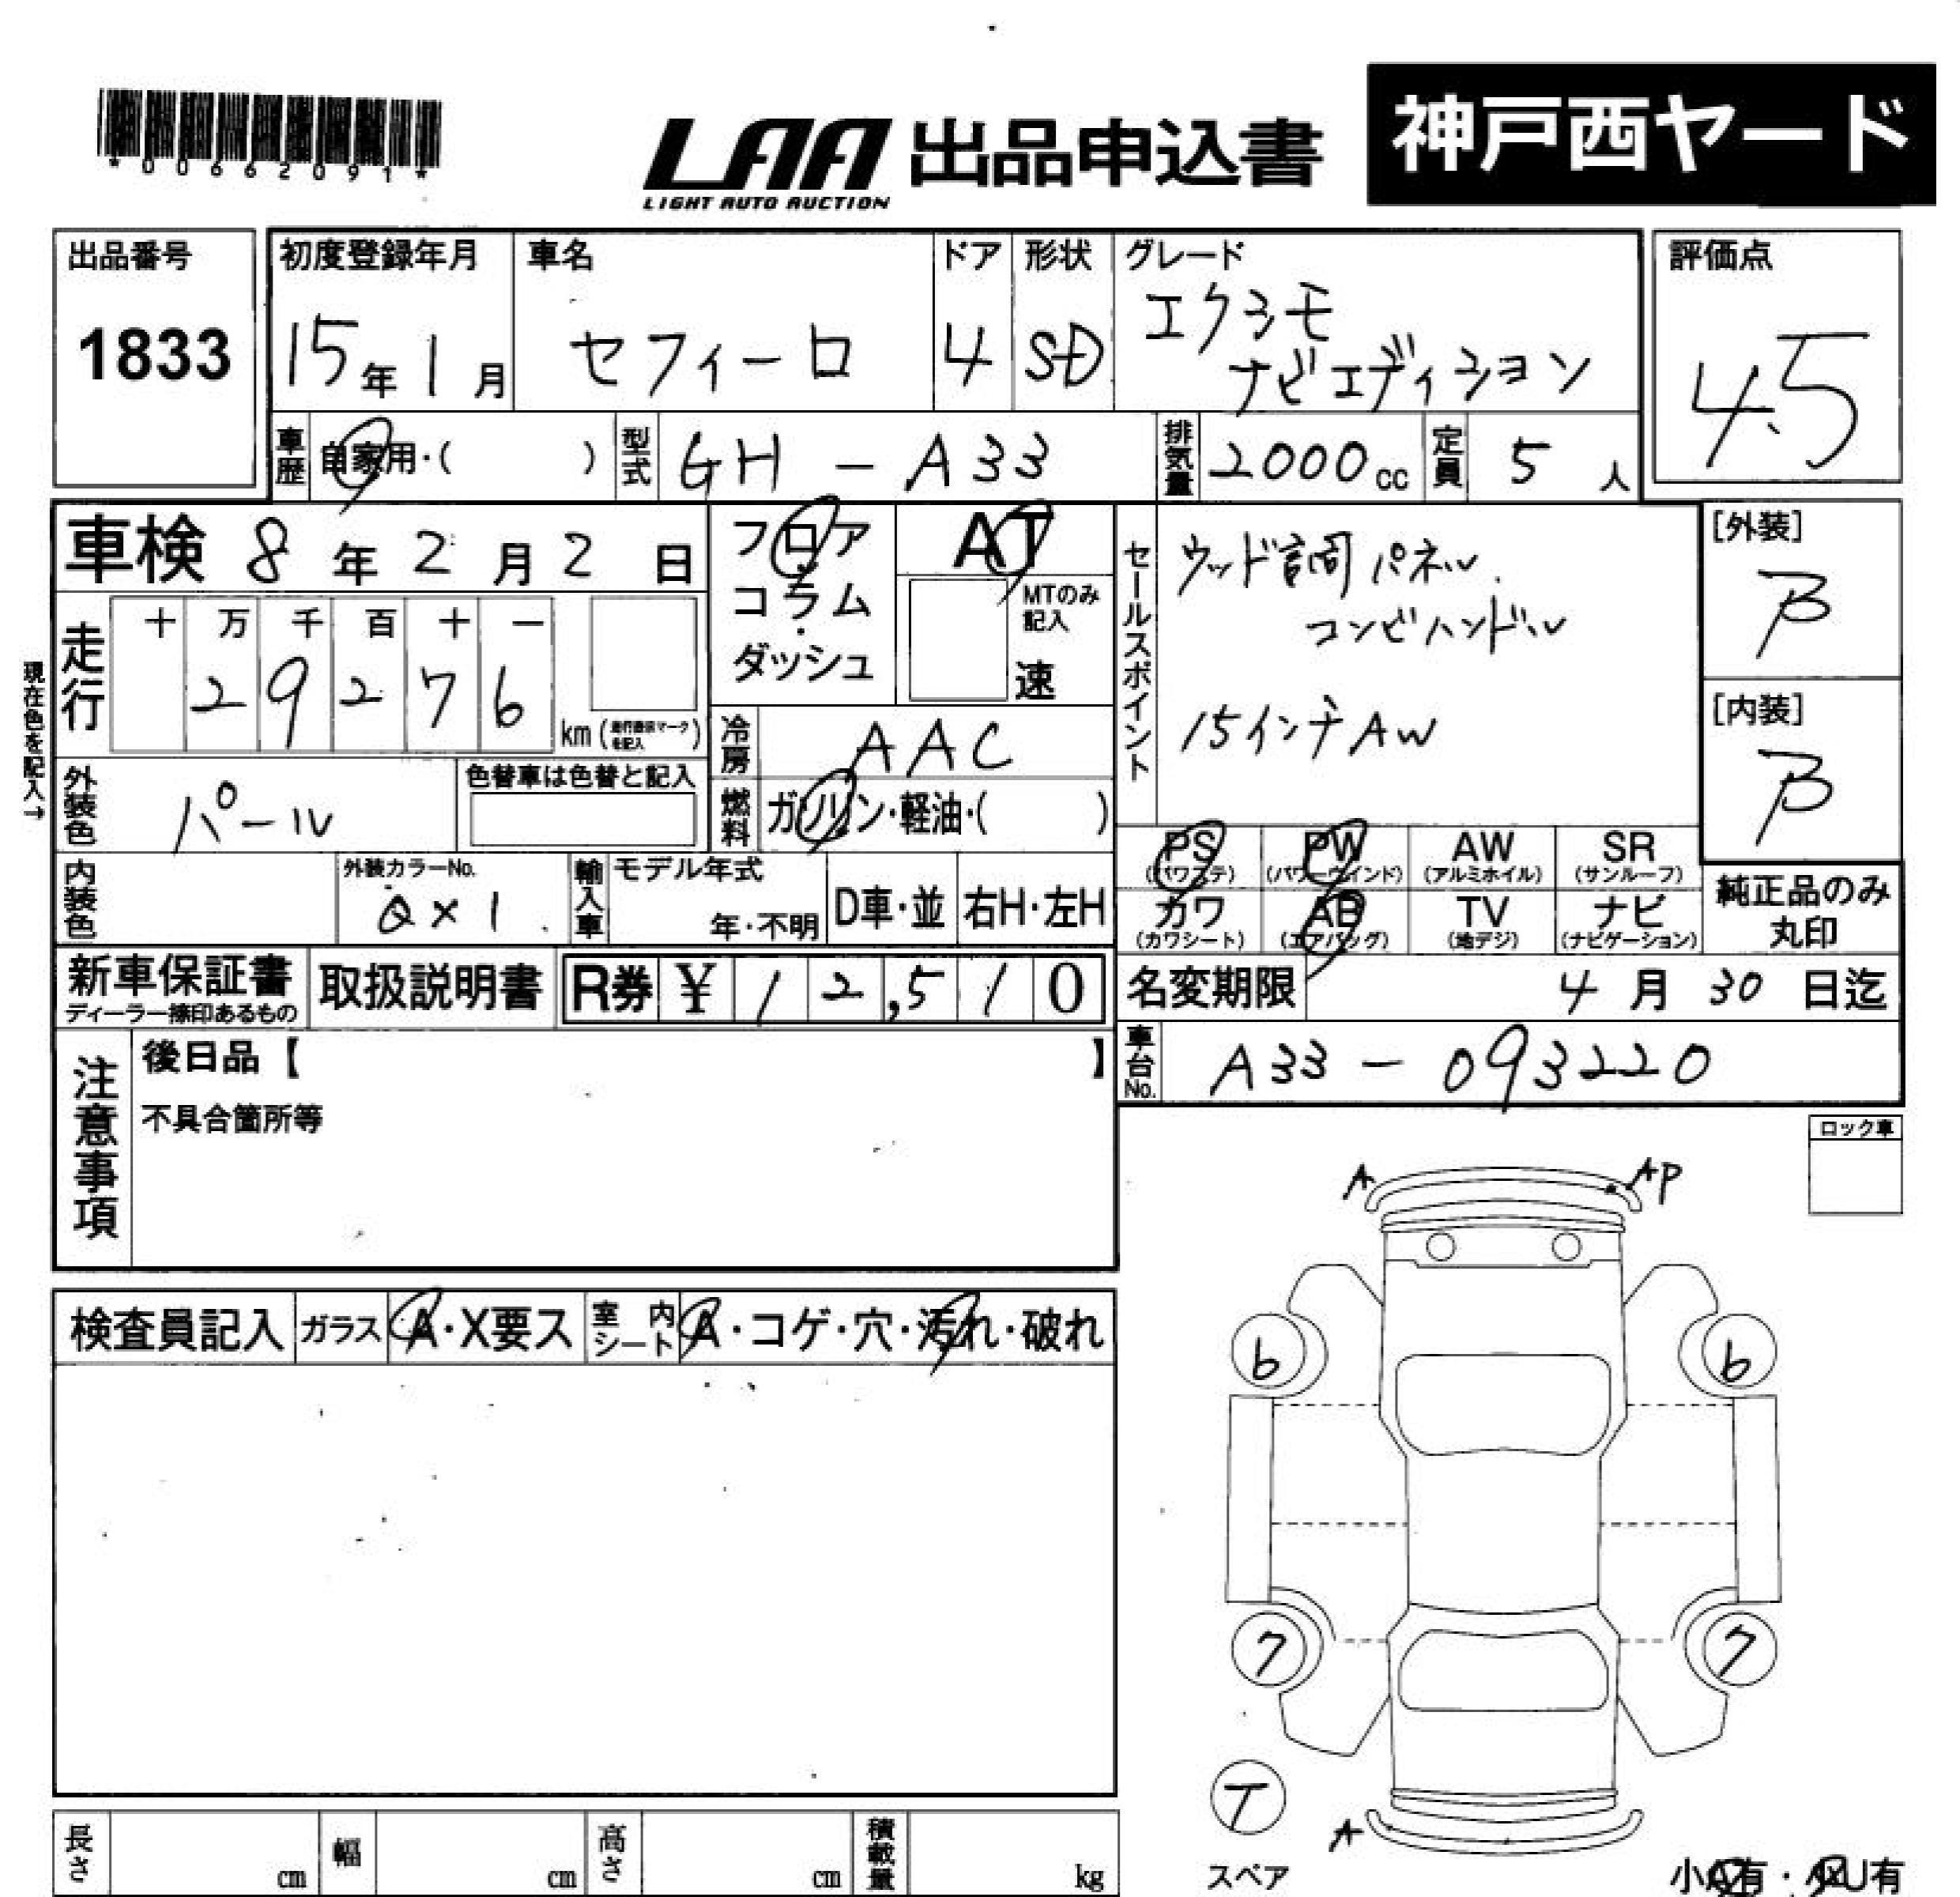 *00662091*
LAA 出品申込書 神戸西ヤード
LIGHT AUTO AUCTION
出品番号
1833
初度登録年月
15年1月
車名
セフィーロ
ドア
4
形状
SD
グレード
エクシモ
ナビエディション
評価点
4.5
車歴 自家用・( )
型式 GH-A33
排気量 2000cc
定員 5人
車検 8年2月2日
フロア・コラム・ダッシュ
AT
MTのみ記入
速
セールスポイント
ウッド調パネル.
コンビハンドル
15インチAW
[外装]
B
[内装]
B
現在色を記入→
走行
十 万 千 百 十 一
2 9 2 7 6
km
冷房 AAC
外装色 パール
色替車は色替と記入
燃料 ガソリン・軽油・( )
PS (パワステ)
PW (パワーウインド)
AW (アルミホイル)
SR (サンルーフ)
カワ (カワシート)
AB (エアバッグ)
TV (地デジ)
ナビ (ナビゲーション)
純正品のみ
丸印
内装色
外装カラーNo.
QX1
輸入車
モデル年式
年・不明
D車・並
右H・左H
新車保証書
ディーラー捺印あるもの
取扱説明書
R券 ¥12,510
名変期限 4月30日迄
車台No. A33-093220
注意事項
後日品【 】
不具合箇所等
ロック車
A AP
検査員記入
ガラス A・X要ス
室内シート A・コゲ・穴・汚れ・破れ
6 6
7 7
T
スペア
A
長さ cm
幅 cm
高さ cm
積載量 kg